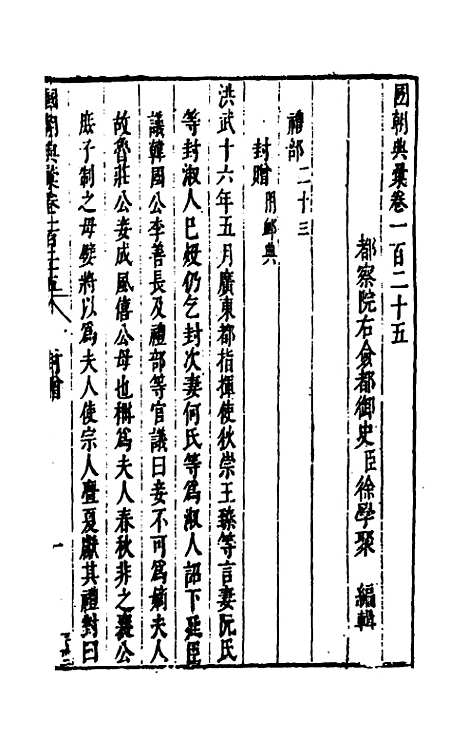 國朝典彙卷一百二十五
都察院右僉都御史臣徐學聚 編輯
禮部二十三
封贈 附卹典
洪武十六年五月廣東都指揮使狄崇王臻等言妻阮氏
等封淑人已歿仍乞封次妻何氏等爲淑人詔下廷臣
議韓國公李善長及禮部等官議曰妾不可爲嫡夫人
故魯莊公妾成風僖公母也稱爲夫人春秋非之襄公
庶子制之母嬖將以爲夫人使宗人釁夏獻其禮對曰
國朝典彙卷一百二十五 封贈 一